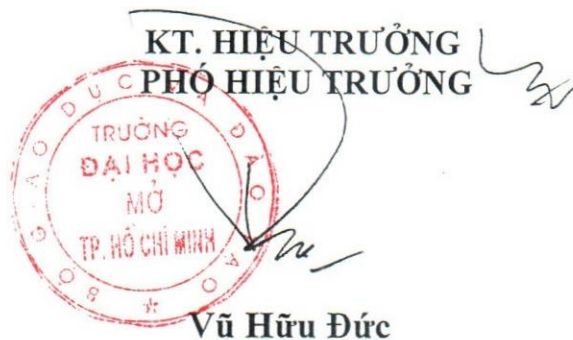 KT. HIỆU TRƯỞNG
PHÓ HIỆU TRƯỞNG
BỘ GIÁO DỤC VÀ ĐÀO TẠO
TRƯỜNG
ĐẠI HỌC
MỞ
TP. HỒ CHÍ MINH
Vũ Hữu Đức